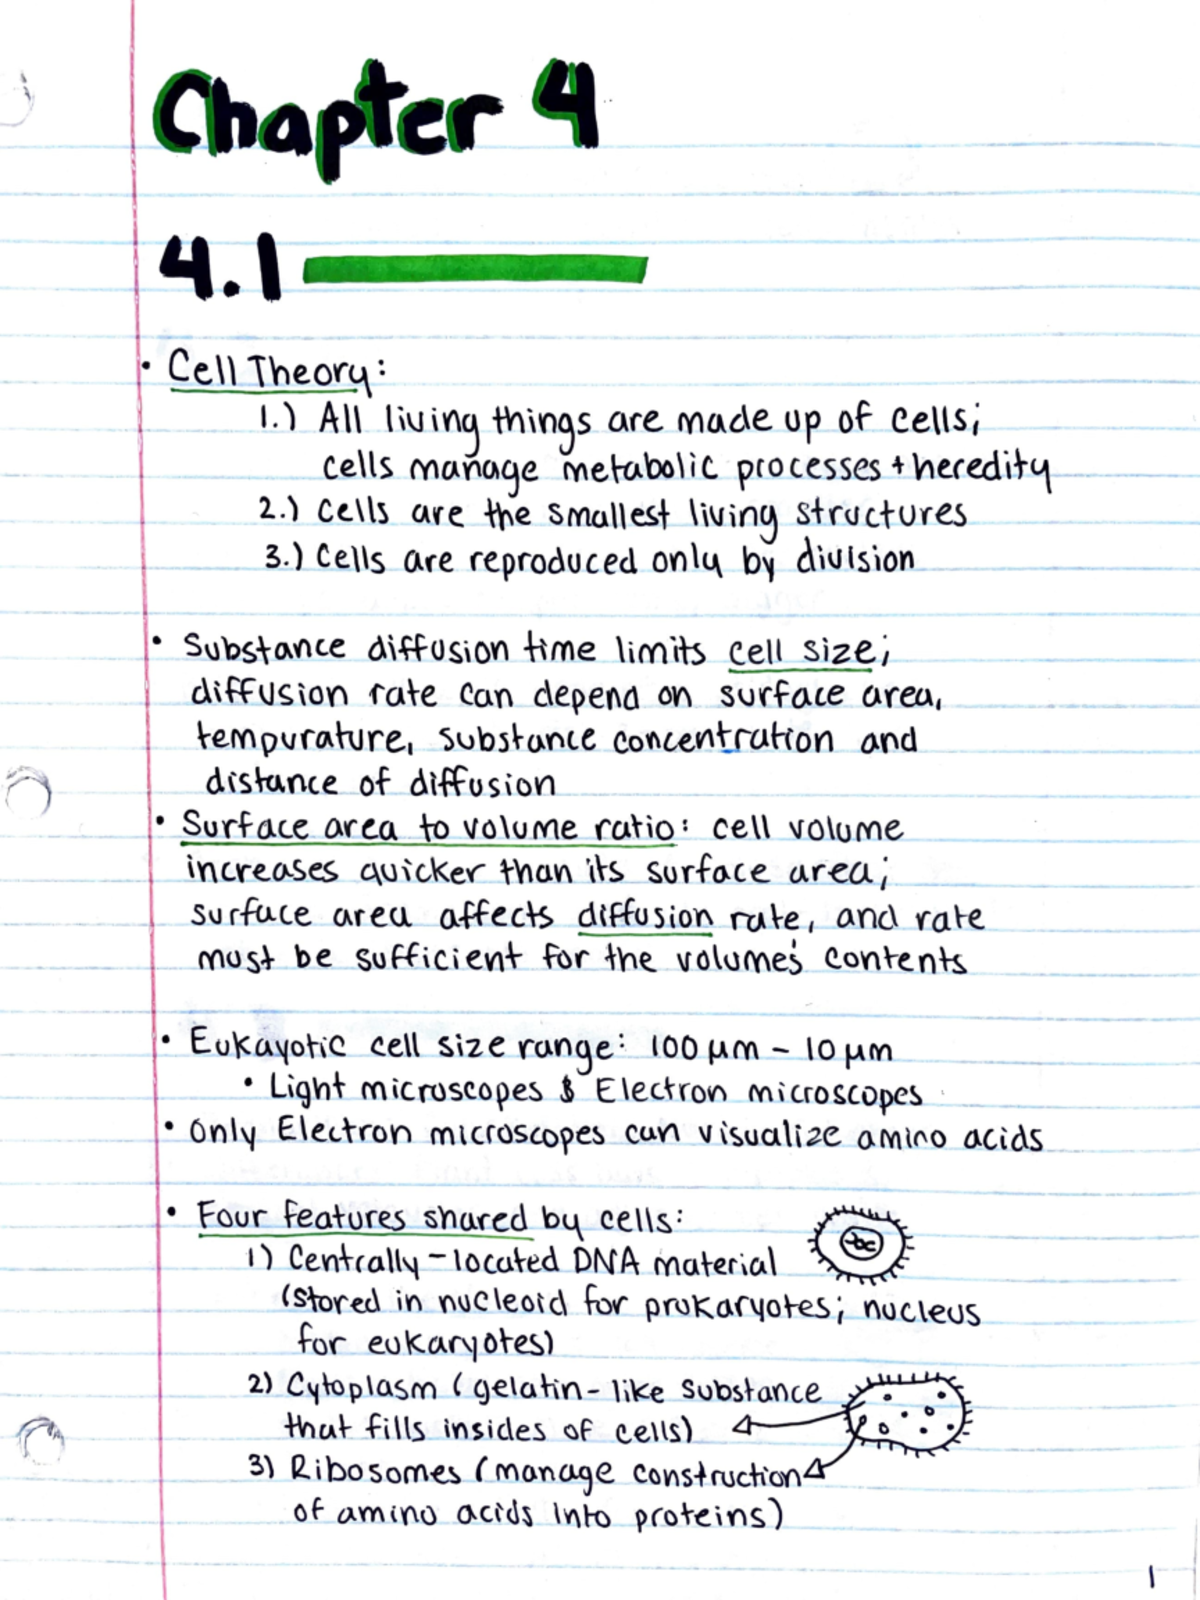 Chapter 4
4.1
• Cell Theory:
1.) All living things are made up of cells;
cells manage metabolic processes + heredity
2.) Cells are the smallest living structures
3.) Cells are reproduced only by division
• Substance diffusion time limits cell size;
diffusion rate can depend on surface area,
tempurature, substance concentration and
distance of diffusion
• Surface area to volume ratio: cell volume
increases quicker than its surface area;
surface area affects diffusion rate, and rate
must be sufficient for the volume's contents
• Eukayotic cell size range: 100 µm - 10 µm
• Light microscopes & Electron microscopes
• Only Electron microscopes can visualize amino acids
• Four features shared by cells:
1) Centrally-located DNA material
(stored in nucleoid for prokaryotes; nucleus
for eukaryotes)
2) Cytoplasm (gelatin-like substance
that fills insides of cells)
3) Ribosomes (manage construction
of amino acids into proteins)
1